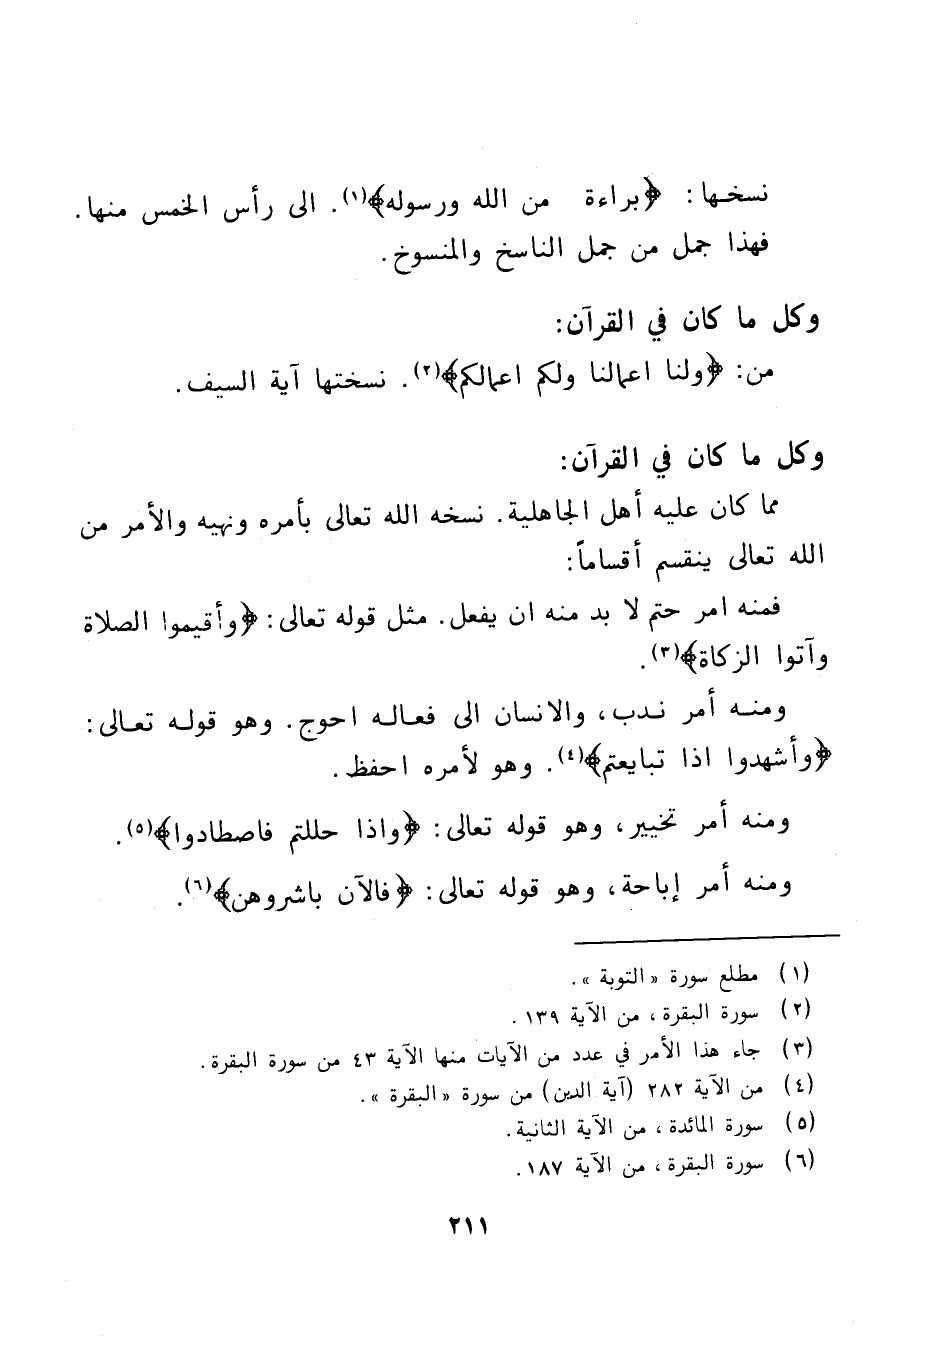 نسخها: ﴿براءة من الله ورسوله﴾(١). الى رأس الخمس منها.
فهذا جمل من جمل الناسخ والمنسوخ.
وكل ما كان في القرآن:
من: ﴿ولنا اعمالنا ولكم اعمالكم﴾(٢). نسختها آية السيف.
وكل ما كان في القرآن:
مما كان عليه أهل الجاهلية. نسخه الله تعالى بأمره ونهيه والأمر من
الله تعالى ينقسم أقساماً:
فمنه امر حتم لا بد منه ان يفعل. مثل قوله تعالى: ﴿وأقيموا الصلاة
وآتوا الزكاة﴾(٣).
ومنه أمر ندب، والانسان الى فعاله احوج. وهو قوله تعالى:
﴿وأشهدوا اذا تبايعتم﴾(٤). وهو لأمره احفظ.
ومنه أمر تخيير، وهو قوله تعالى: ﴿واذا حللتم فاصطادوا﴾(٥).
ومنه أمر إباحة، وهو قوله تعالى: ﴿فالآن باشروهن﴾(٦).
(١) مطلع سورة «التوبة».
(٢) سورة البقرة، من الآية ١٣٩.
(٣) جاء هذا الأمر في عدد من الآيات منها الآية ٤٣ من سورة البقرة.
(٤) من الآية ٢٨٢ (آية الدين) من سورة «البقرة».
(٥) سورة المائدة، من الآية الثانية.
(٦) سورة البقرة، من الآية ١٨٧.
٢١١